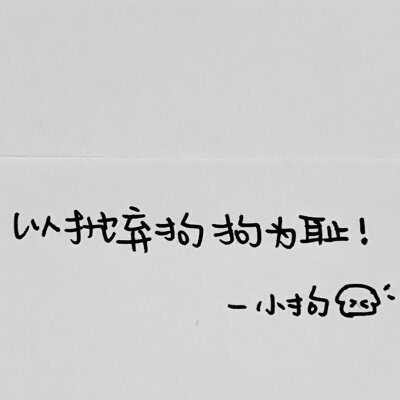 以抛弃狗狗为耻！
一小狗